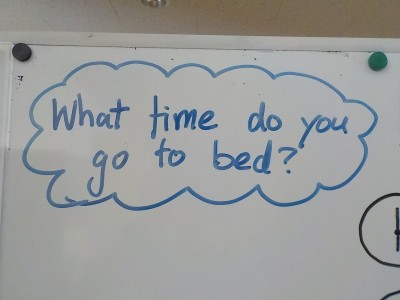 What time do you
go to bed?